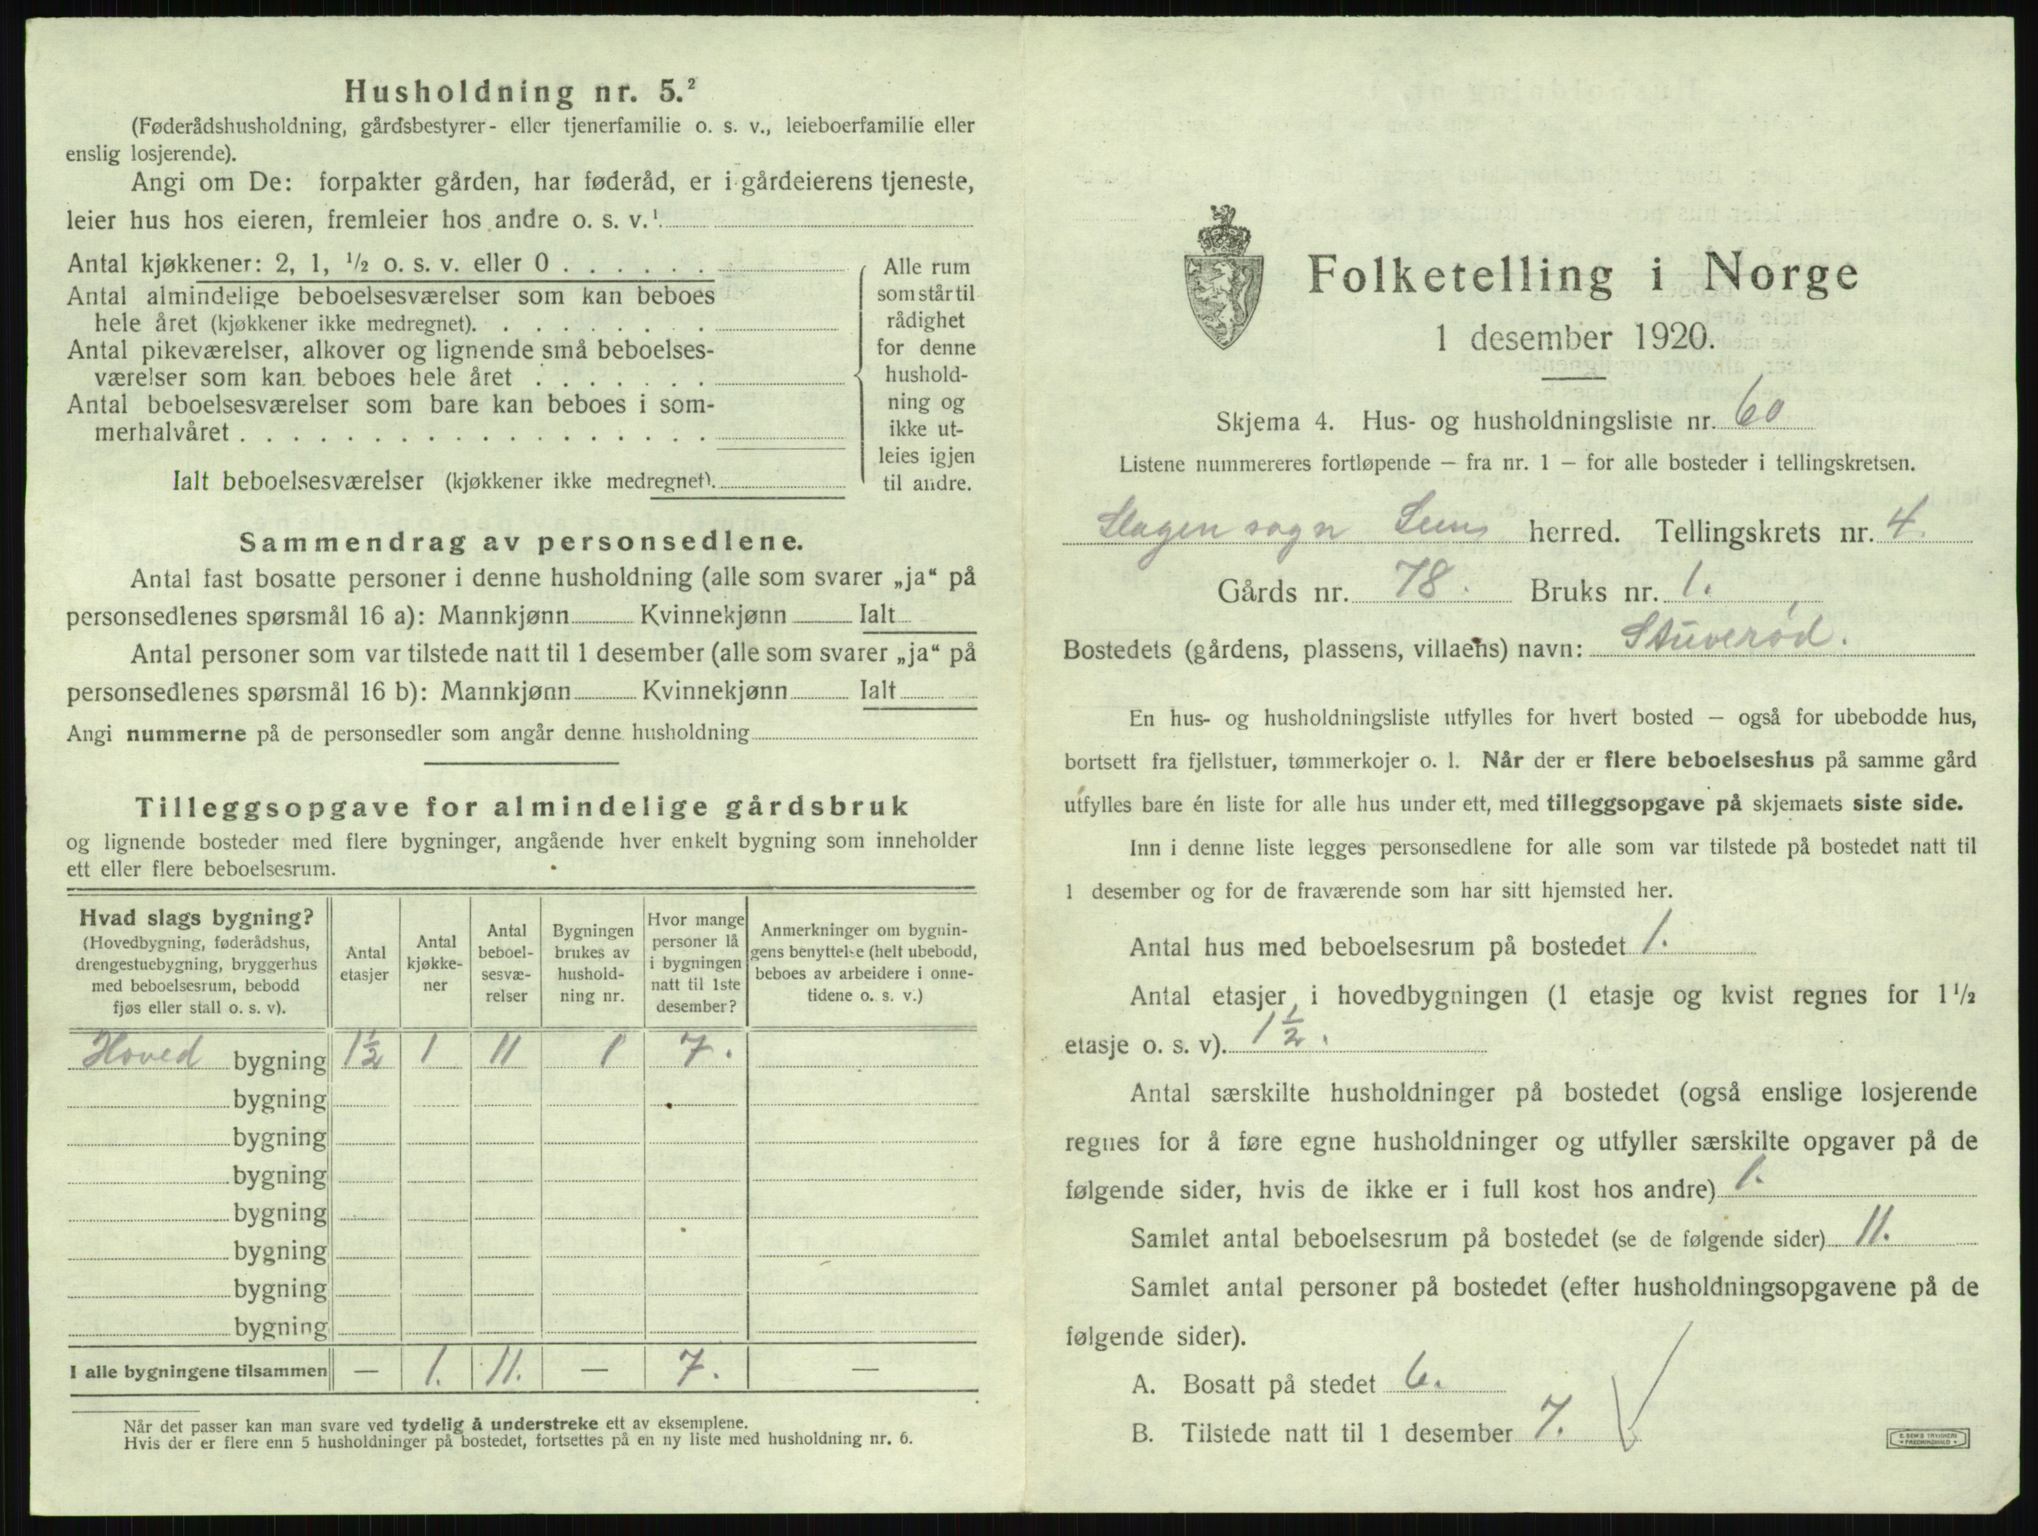 Husholdning nr. 5.²
(Føderådshusholdning, gårdsbestyrer- eller tjenerfamilie o. s. v., leieboerfamilie eller
enslig losjerende).
Angi om De: forpakter gården, har føderåd, er i gårdeierens tjeneste,
leier hus hos eieren, fremleier hos andre o. s. v.¹
Antal kjøkkener: 2, 1, ¹/₂ o. s. v. eller 0 . . . . . .
Antal almindelige beboelsesværelser som kan beboes
hele året (kjøkkener ikke medregnet). . . . . . . . .
Antal pikeværelser, alkover og lignende små beboelses-
værelser som kan beboes hele året . . . . . . .
Antal beboelsesværelser som bare kan beboes i som-
merhalvåret . . . . . . . . . . . . . . . . . .
Ialt beboelsesværelser (kjøkkener ikke medregnet).
Alle rum
som står til
rådighet
for denne
hushold-
ning og
ikke ut-
leies igjen
til andre.
Sammendrag av personsedlene.
Antal fast bosatte personer i denne husholdning (alle som svarer „ja“ på
personsedlenes spørsmål 16 a): Mannkjønn Kvinnekjønn Ialt
Antal personer som var tilstede natt til 1 desember (alle som svarer „ja“ på
personsedlenes spørsmål 16 b): Mannkjønn Kvinnekjønn Ialt
Angi nummerne på de personsedler som angår denne husholdning
Tilleggsopgave for almindelige gårdsbruk
og lignende bosteder med flere bygninger, angående hver enkelt bygning som inneholder
ett eller flere beboelsesrum.
Hvad slags bygning?
(Hovedbygning, føderådshus,
drengestuebygning, bryggerhus
med beboelsesrum, bebodd
fjøs eller stall o. s. v).
Antal
etasjer
Antal
kjøkke-
ner
Antal
beboel-
sesvæ-
relser
Bygningen
brukes av
hushold-
ning nr.
Hvor mange
personer lå
i bygningen
natt til 1ste
desember?
Anmerkninger om bygnin-
gens benyttelse (helt ubebodd,
beboes av arbeidere i onne-
tidene o. s. v.)
Hoved bygning 1½ 1 11 1 7.
bygning
bygning
bygning
bygning
bygning
bygning
bygning
I alle bygningene tilsammen — 1. 11. — 7. —
Når det passer kan man svare ved tydelig å understreke ett av eksemplene.
Hvis der er flere enn 5 husholdninger på bostedet, fortsettes på en ny liste med husholdning nr. 6.
Folketelling i Norge
1 desember 1920.
Skjema 4. Hus- og husholdningsliste nr. 60
Listene nummereres fortløpende — fra nr. 1 — for alle bosteder i tellingskretsen.
Slagen sogn Sem herred. Tellingskrets nr. 4.
Gårds nr. 78. Bruks nr. 1.
Bostedets (gårdens, plassens, villaens) navn: Stuverød.
En hus- og husholdningsliste utfylles for hvert bosted — også for ubebodde hus,
bortsett fra fjellstuer, tømmerkojer o. l. Når der er flere beboelseshus på samme gård
utfylles bare én liste for alle hus under ett, med tilleggsopgave på skjemaets siste side.
Inn i denne liste legges personsedlene for alle som var tilstede på bostedet natt til
1 desember og for de fraværende som har sitt hjemsted her.
Antal hus med beboelsesrum på bostedet 1.
Antal etasjer i hovedbygningen (1 etasje og kvist regnes for 1¹/₂
etasje o. s. v). 1½.
Antal særskilte husholdninger på bostedet (også enslige losjerende
regnes for å føre egne husholdninger og utfyller særskilte opgaver på de
følgende sider, hvis de ikke er i full kost hos andre) 1.
Samlet antal beboelsesrum på bostedet (se de følgende sider) 11.
Samlet antal personer på bostedet (efter husholdningsopgavene på de
følgende sider).
A. Bosatt på stedet 6.
B. Tilstede natt til 1 desember 7.